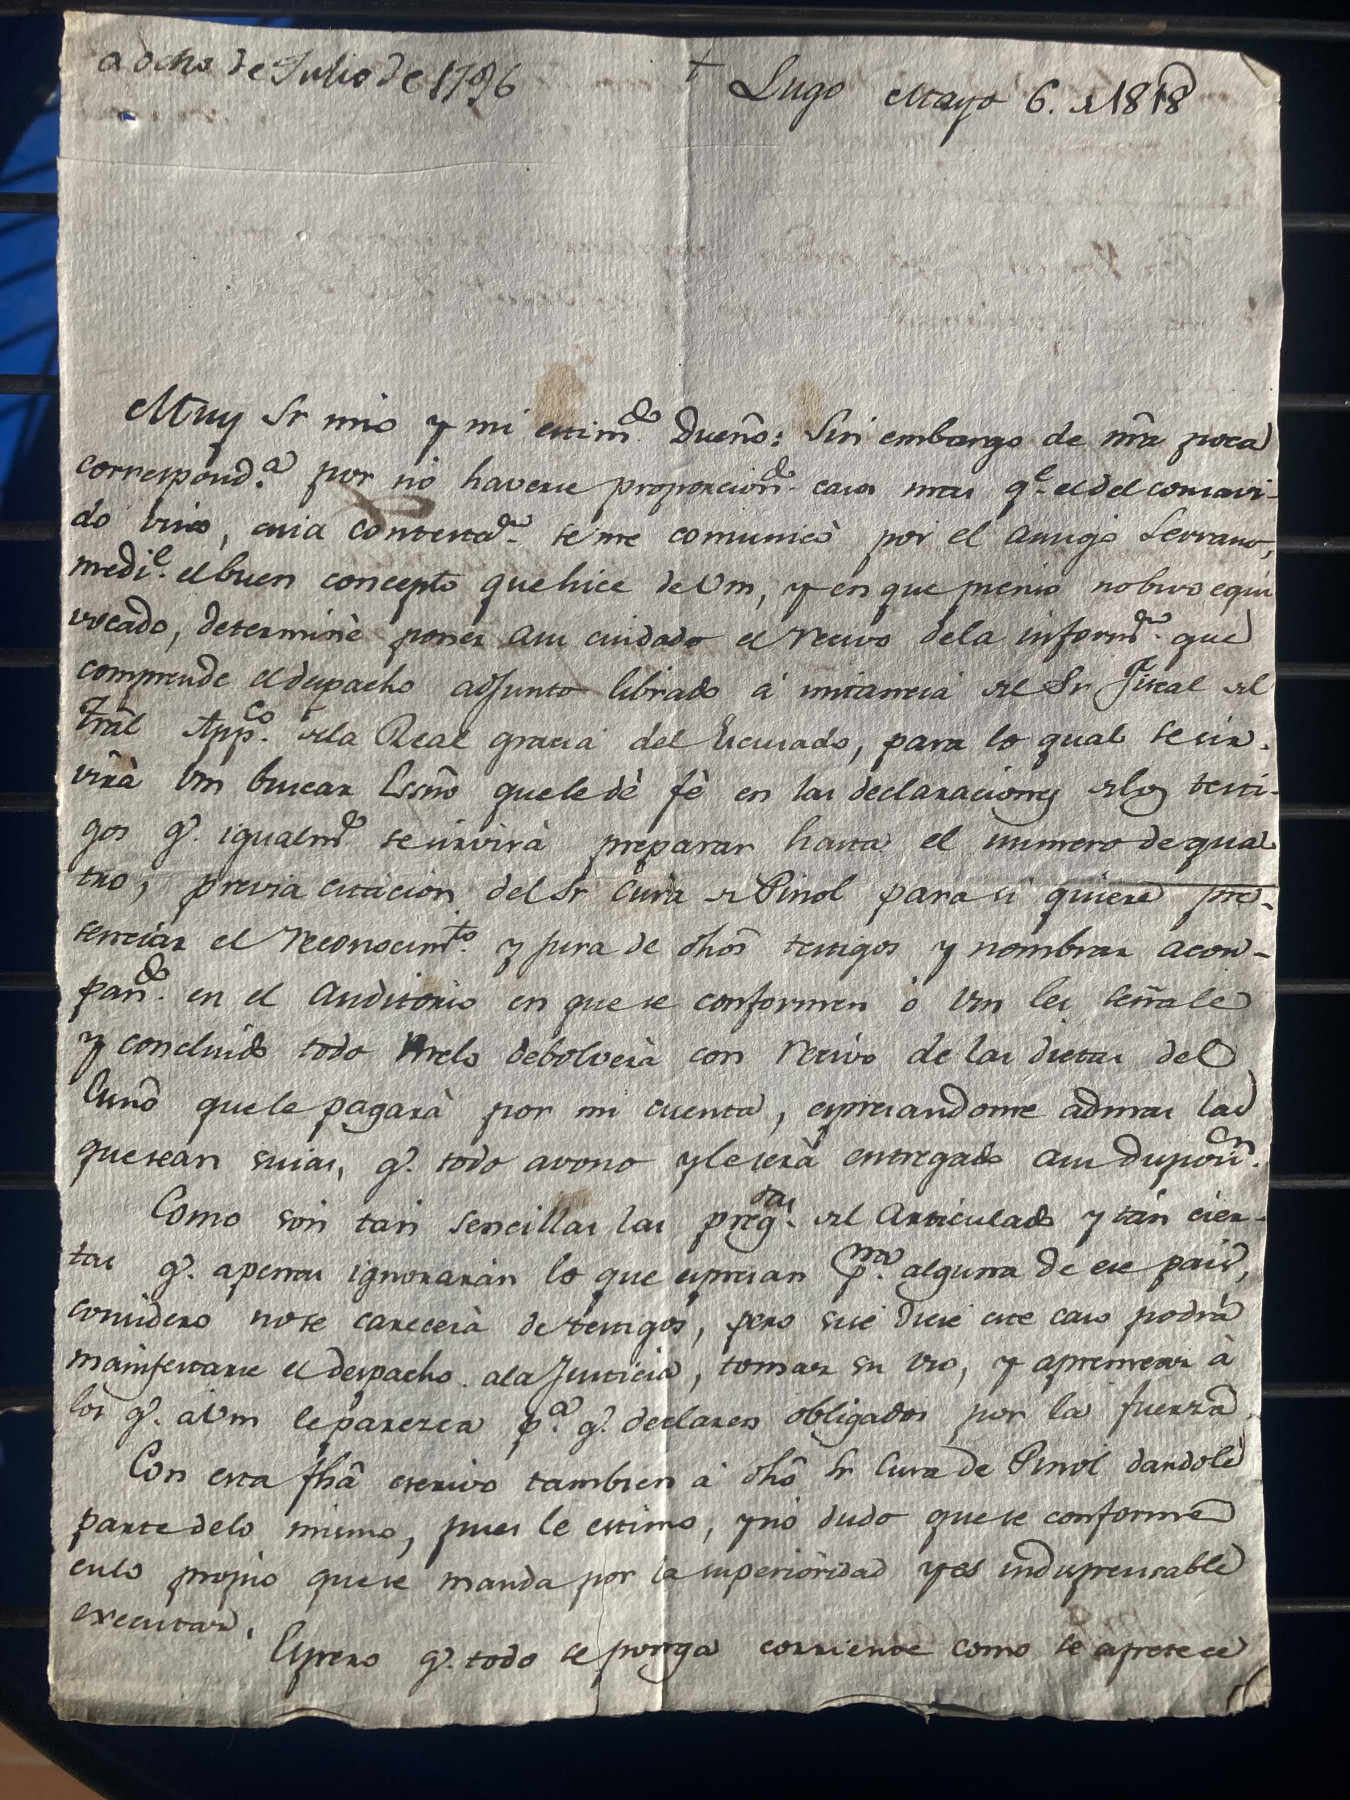 a ocho de Julio de 1796
† Lugo Mayo 6. de 1818
Muy Sr mio y mi estimdo. Dueño: Sin embargo de nra poca
corresponda. por no haverse proporciondo. casos mas qe. el del consavi-
do vino, cuia contestaon. se me comunicò por el amigo Serrano,
medie. el buen concepto que hice de Vm, y en que pienso no bivo equi
vocado, determinè poner a su cuidado el recivo dela informon. que
comprende el despacho adjunto librado à instancia del Sr Fiscal del
Tral Appco. dela Real gracia del Escusado, para lo qual se sir-
virà Vm buscar Essno que le dè fè en las declaraciones delos testi-
gos q. igualmte se servirà preparar hasta el numero de qua
tro, previa citacion del Sr Cura de Piñol para si quiere pre-
senciar el reconocimto. y jura de dhos testigos y nombrar acom-
pañdo. en el auditorio en que se conformen ò Vm les señale
y concluido todo melo debolverà con recivo de las dietas del
Essno que le pagarà por mi cuenta, expresandome ademas las
que sean suias, q. todo avono y le serà entregado a su disposon.
Como son tan sencillas las pregtas. del articulado y tan cier-
tas q. apenas ignoraràn lo que expresan psna. alguna de ese pais,
considero no se carecerà de testigos, pero si se diese este caso podrà
manifestarse el despacho ala Justicia, tomar su uso, y apremiar à
los q. à Vm le parezca pa. q. declaren obligados por la fuerza.
Con esta fha escrivo tambien à dho Sr Cura de Piñol dandole
parte delo mismo, pues le estimo, y no dudo que se conforme
en lo propio que se manda por la superioridad y es indispensable
executar.
Espero q. todo se ponga corriente como se apetece